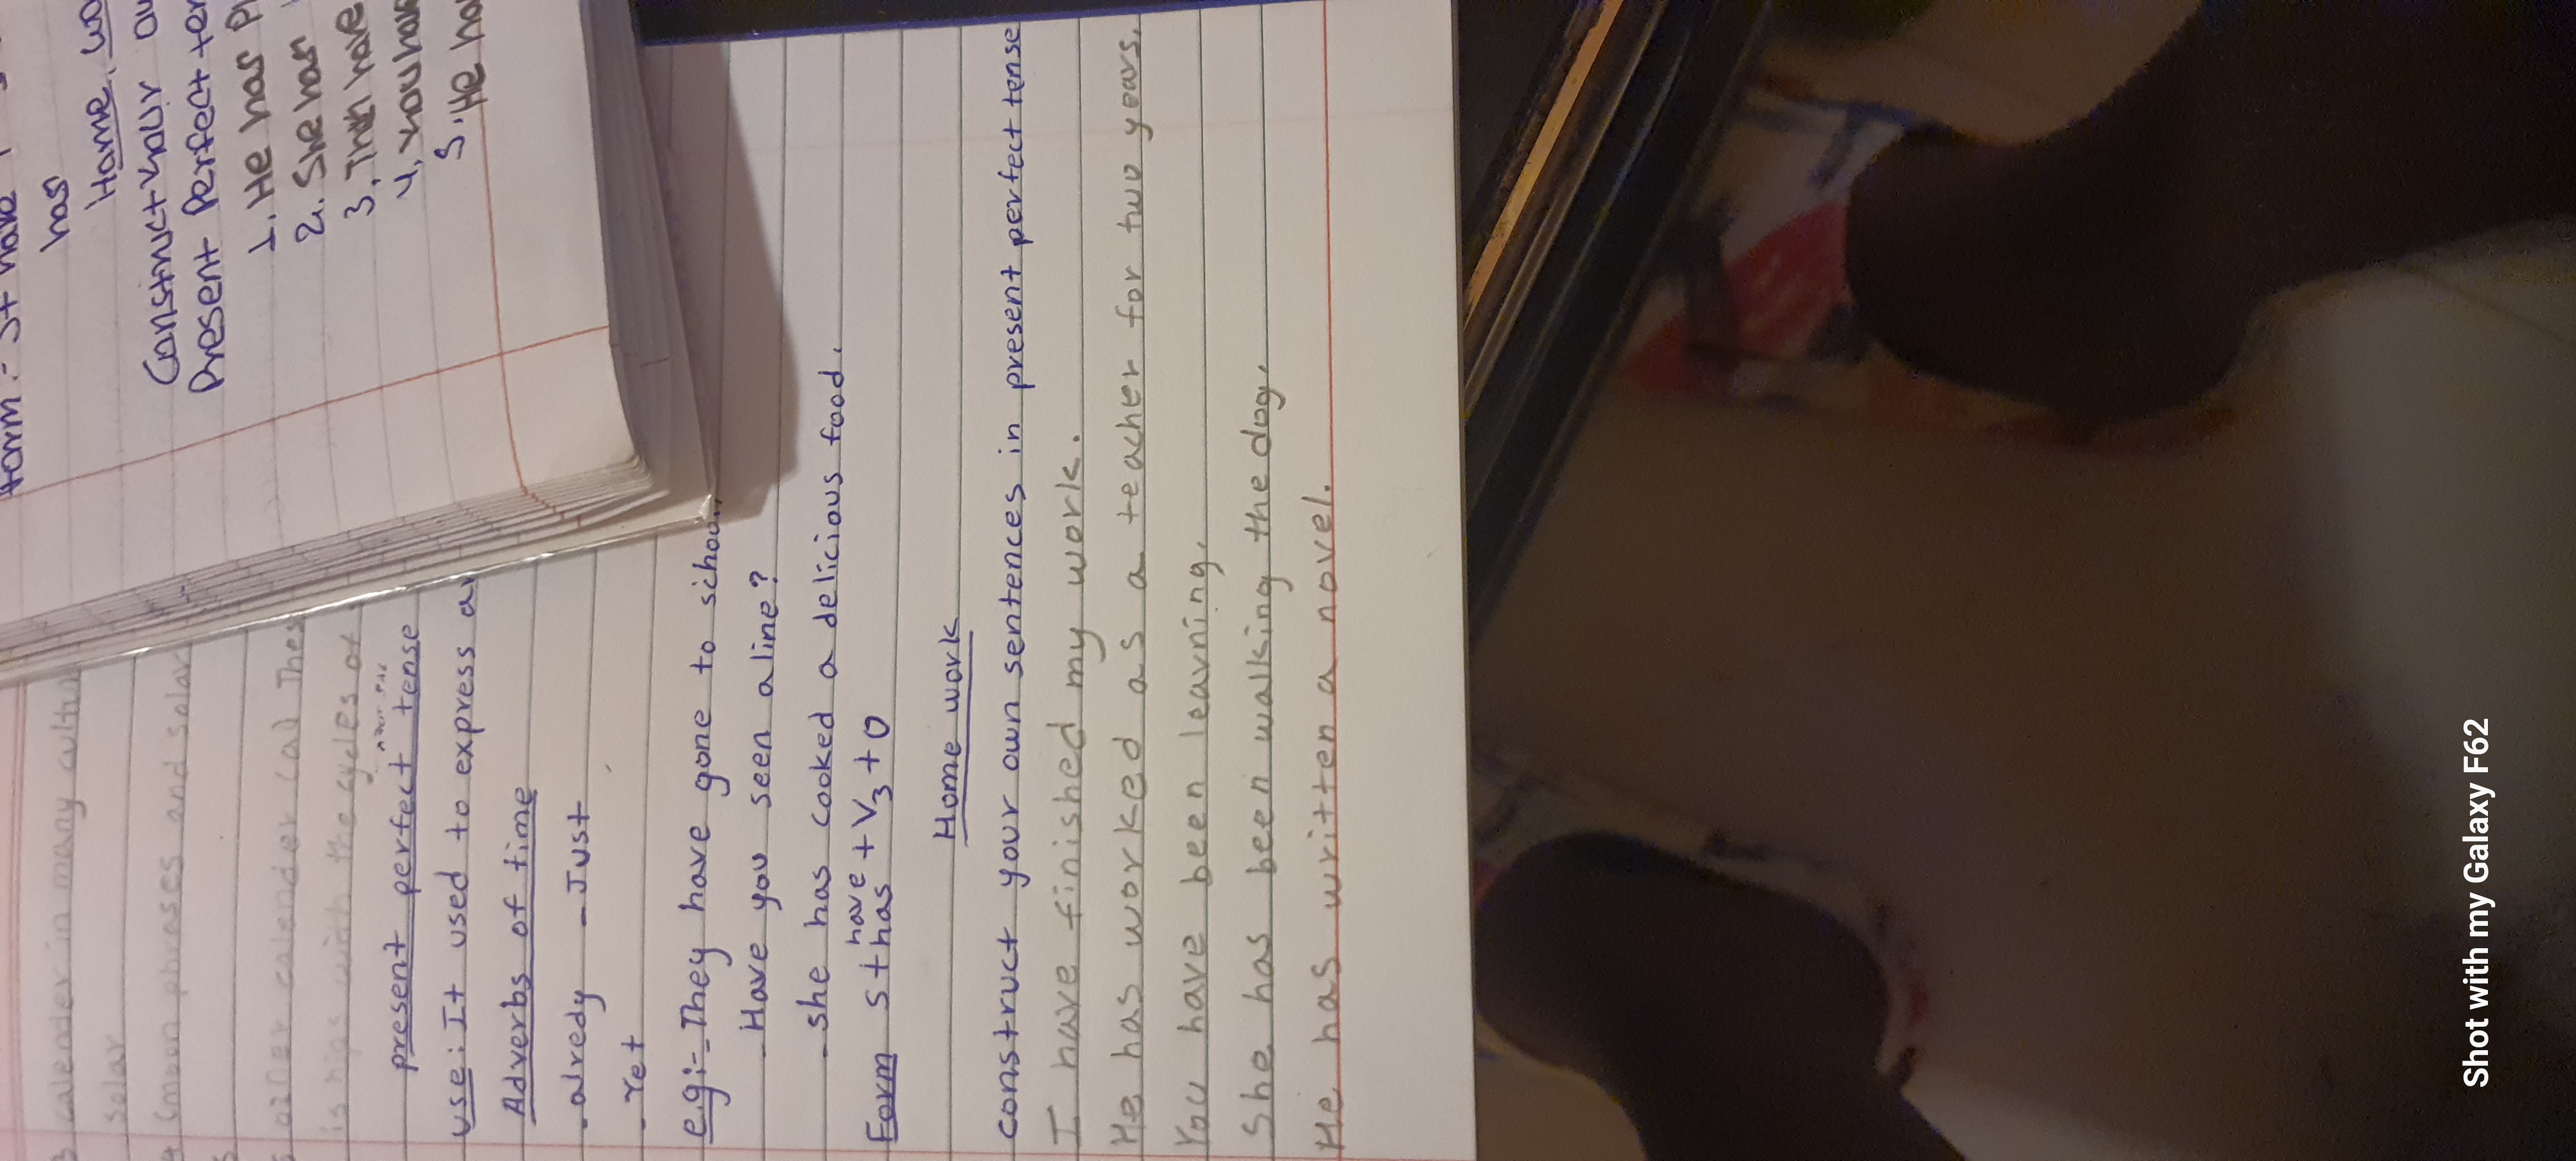 3 calender in many cultu
solar
4 (moon phreses and solar
5
other calender (al) Thes
is hips with the cycles of
present perfect tense
use: It used to express a
Adverbs of time
-alredy -Just
-Yet
e.g:- They have gone to school.
-Have you seen aline?
-she has cooked a delicious food.
have
Form S+has+V3+O
Home work
construct your own sentences in present perfect tense
I have finished my work.
He has worked as a teacher for two years.
You have been learning.
She has been walking the dog.
He has written a novel.
form:- S+ have
has
Home, wo
Construct your ou
Present Perfect ten
1. He has Pl
2. She has
3, have
4, You have
5. He ha
Shot with my Galaxy F62